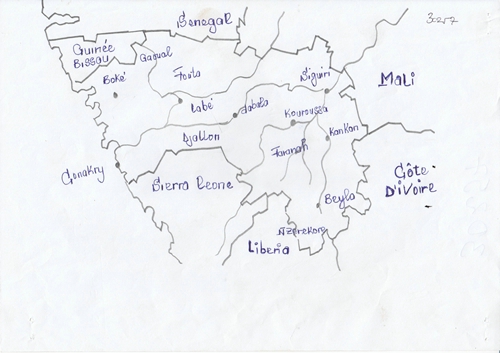 Senegal
Guinée
Bissau
Gaoual
Fouta
Siguiri
Mali
Boké
Labé
dabola
Kouroussa
Djallon
Kankan
Faranah
Conakry
Sierra Leone
Côte
D'ivoire
Beyla
Nzerekore
Liberia